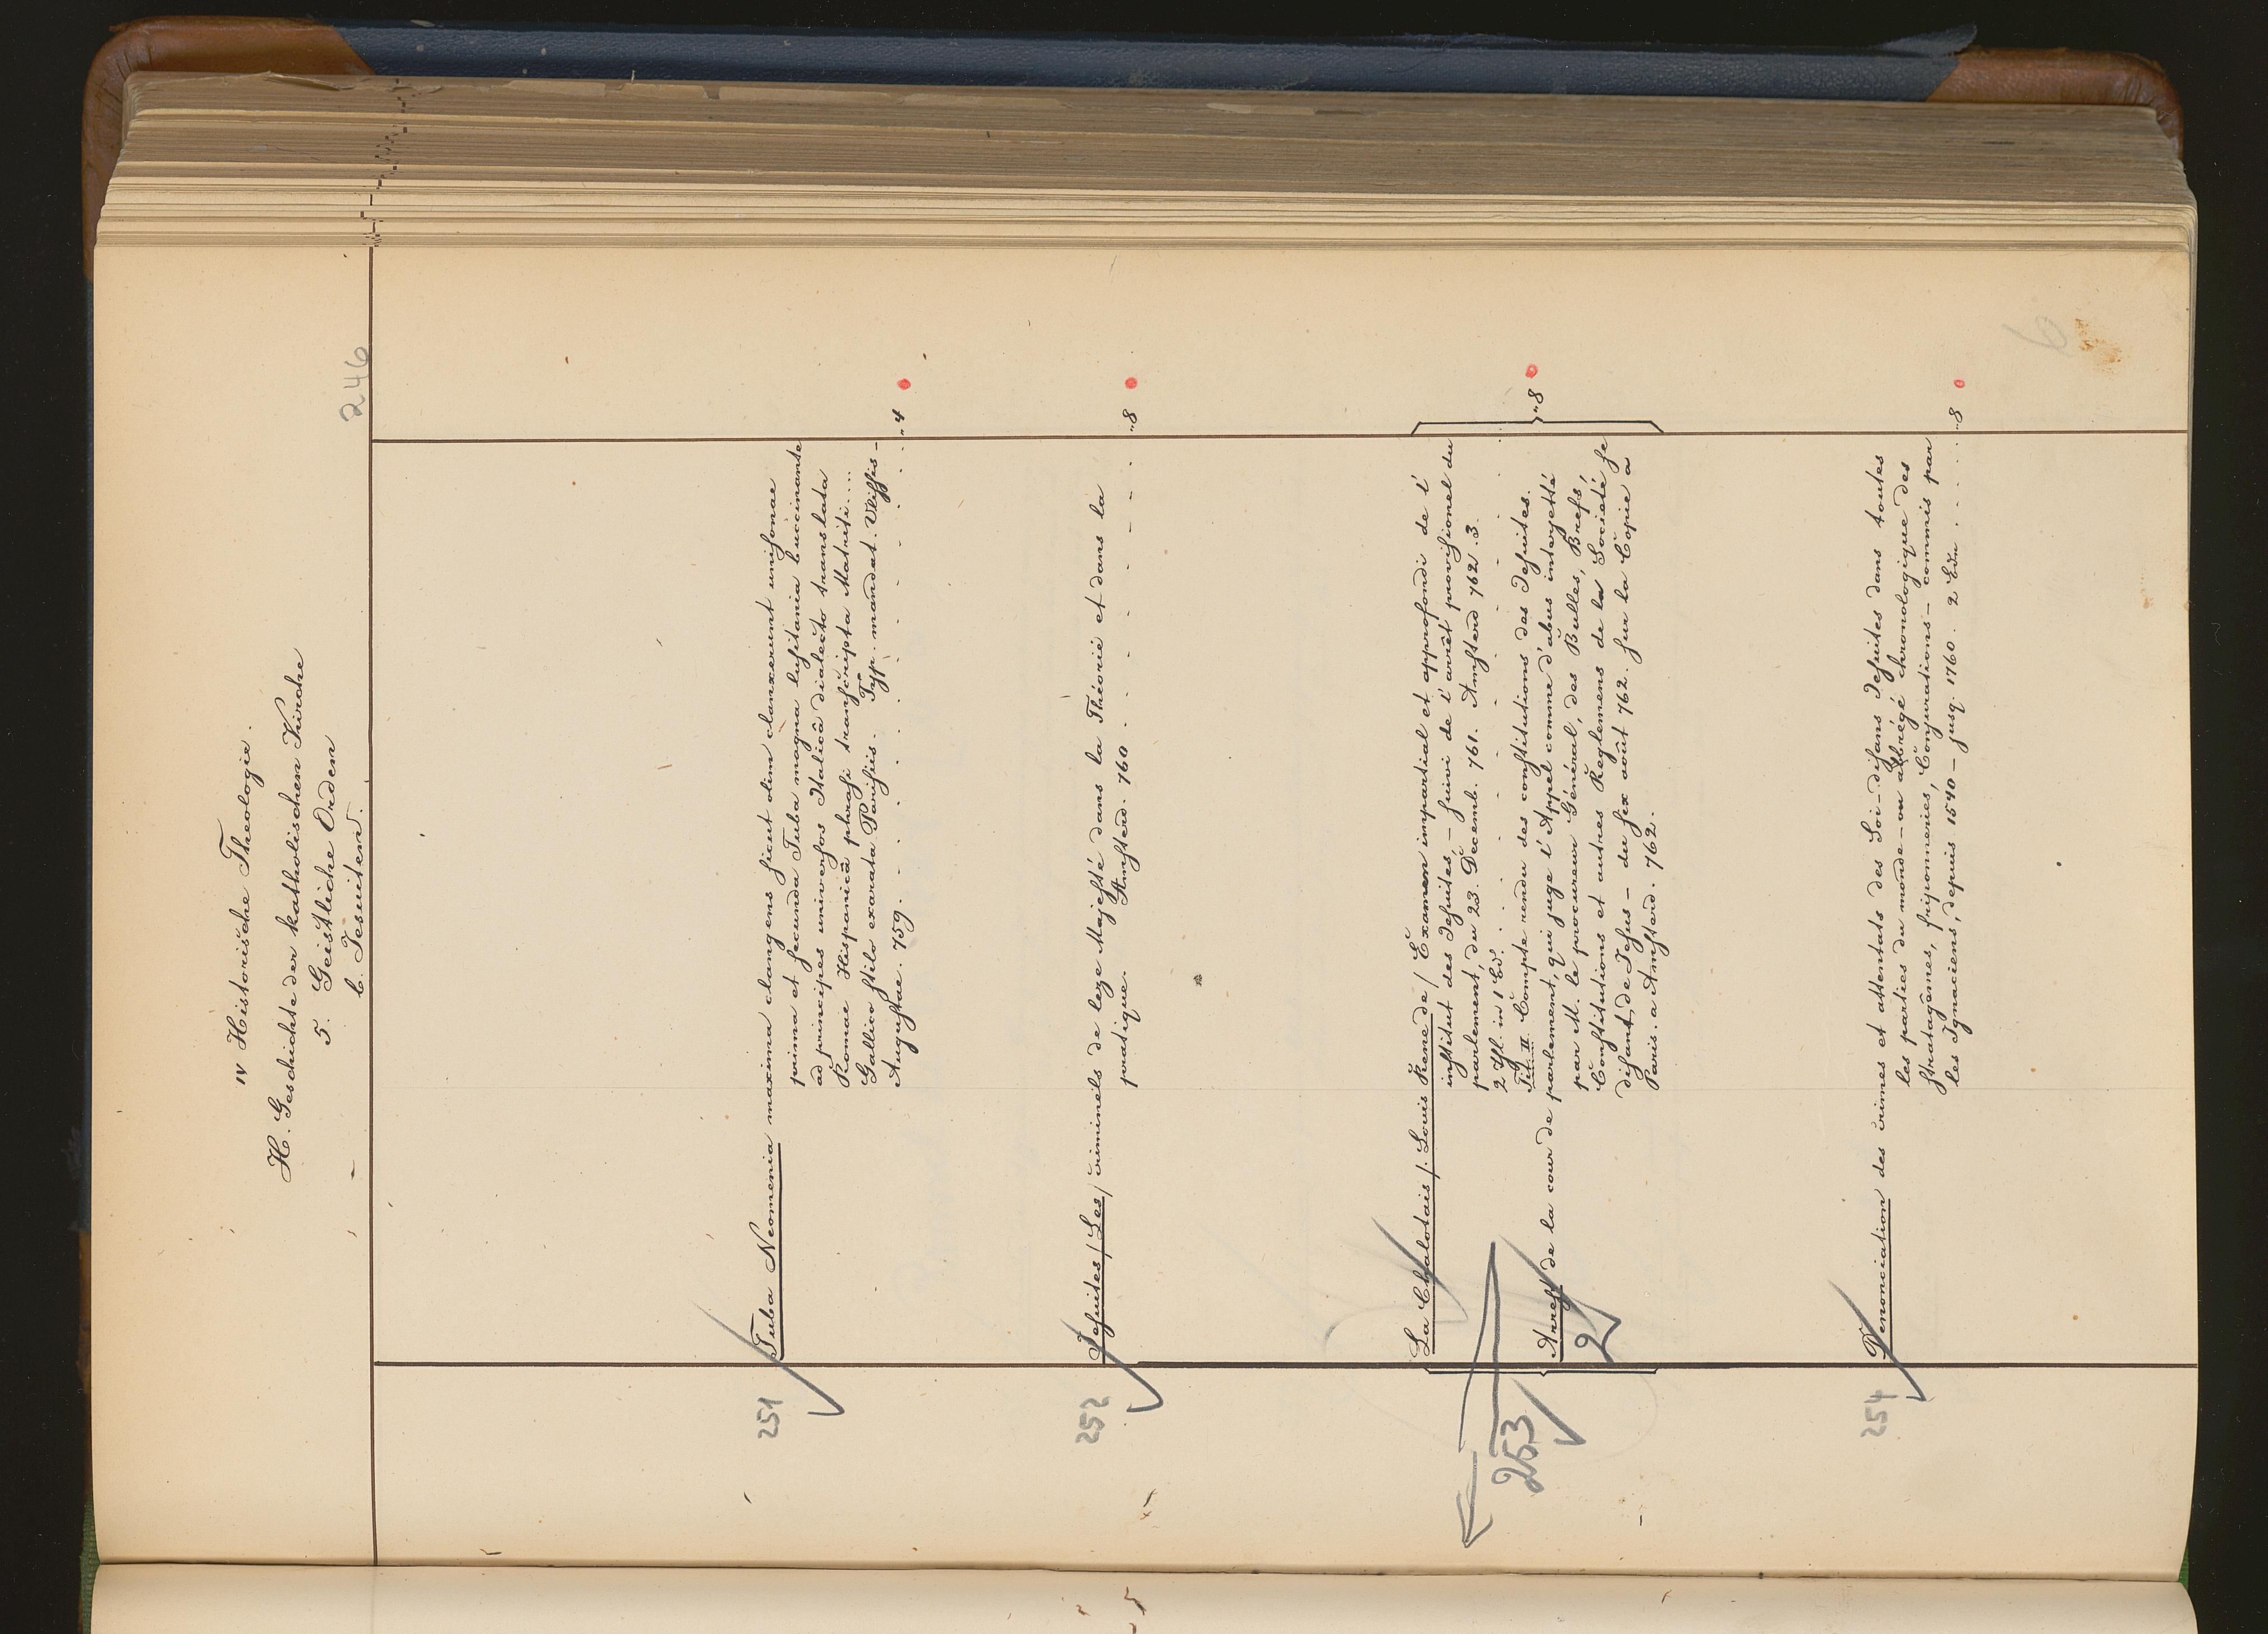 IV Historische Theologie.
H. Geschichte der katholischen Kirche
5. Geistliche Orden
b. Jesuiten.
246
251 Tuba Neomenia maxima clangens sicut olim clanxerunt unisonae
prima et secunda Tuba magna lusitania buccinante
ad principes universos Italicâ dialecto translata
Romae Hispanicâ phrasi transscripta Matriti....
Gallico stilo exarata Parisiis. Typ. mandat. Ulyssis-
Augustae. 759. „4
252 Jesuites / Les / criminels de leze Majesté dans la Théorie et dans la
pratique. Amsterd. 760 „8
253 La Chalotais /. Louis Rene de / Examen impartial et approfondi de l'
institut des Jesuites, - suivi de l'arrêt provisionel du
parlement, du 23. Decemb. 761. Amsterd 762. 3.
2 Thl. in 1 Bd. „8
Tit. II. Compte rendu des constitutions des Jesuites.
Arrest de la cour de parlement, qui juge l'Appel comme d'abus interjetté
par M. le procureur Général, des Bulles, Brefs,
Constitutions et autres Reglemens de la Societé se
disant de Jesus - du six août 762. sur la Copie a
Paris. a Amsterd. 762.
2
254 Denonciation des crimes et attentats des Soi-disans Jesuites dans toutes
les parties du monde - ou abrégé chronologique des
stratagêmes, friponneries, Conjurations - commis par
les Ignaciens, depuis 1540 - jusq. 1760. 2 Bde „8
6